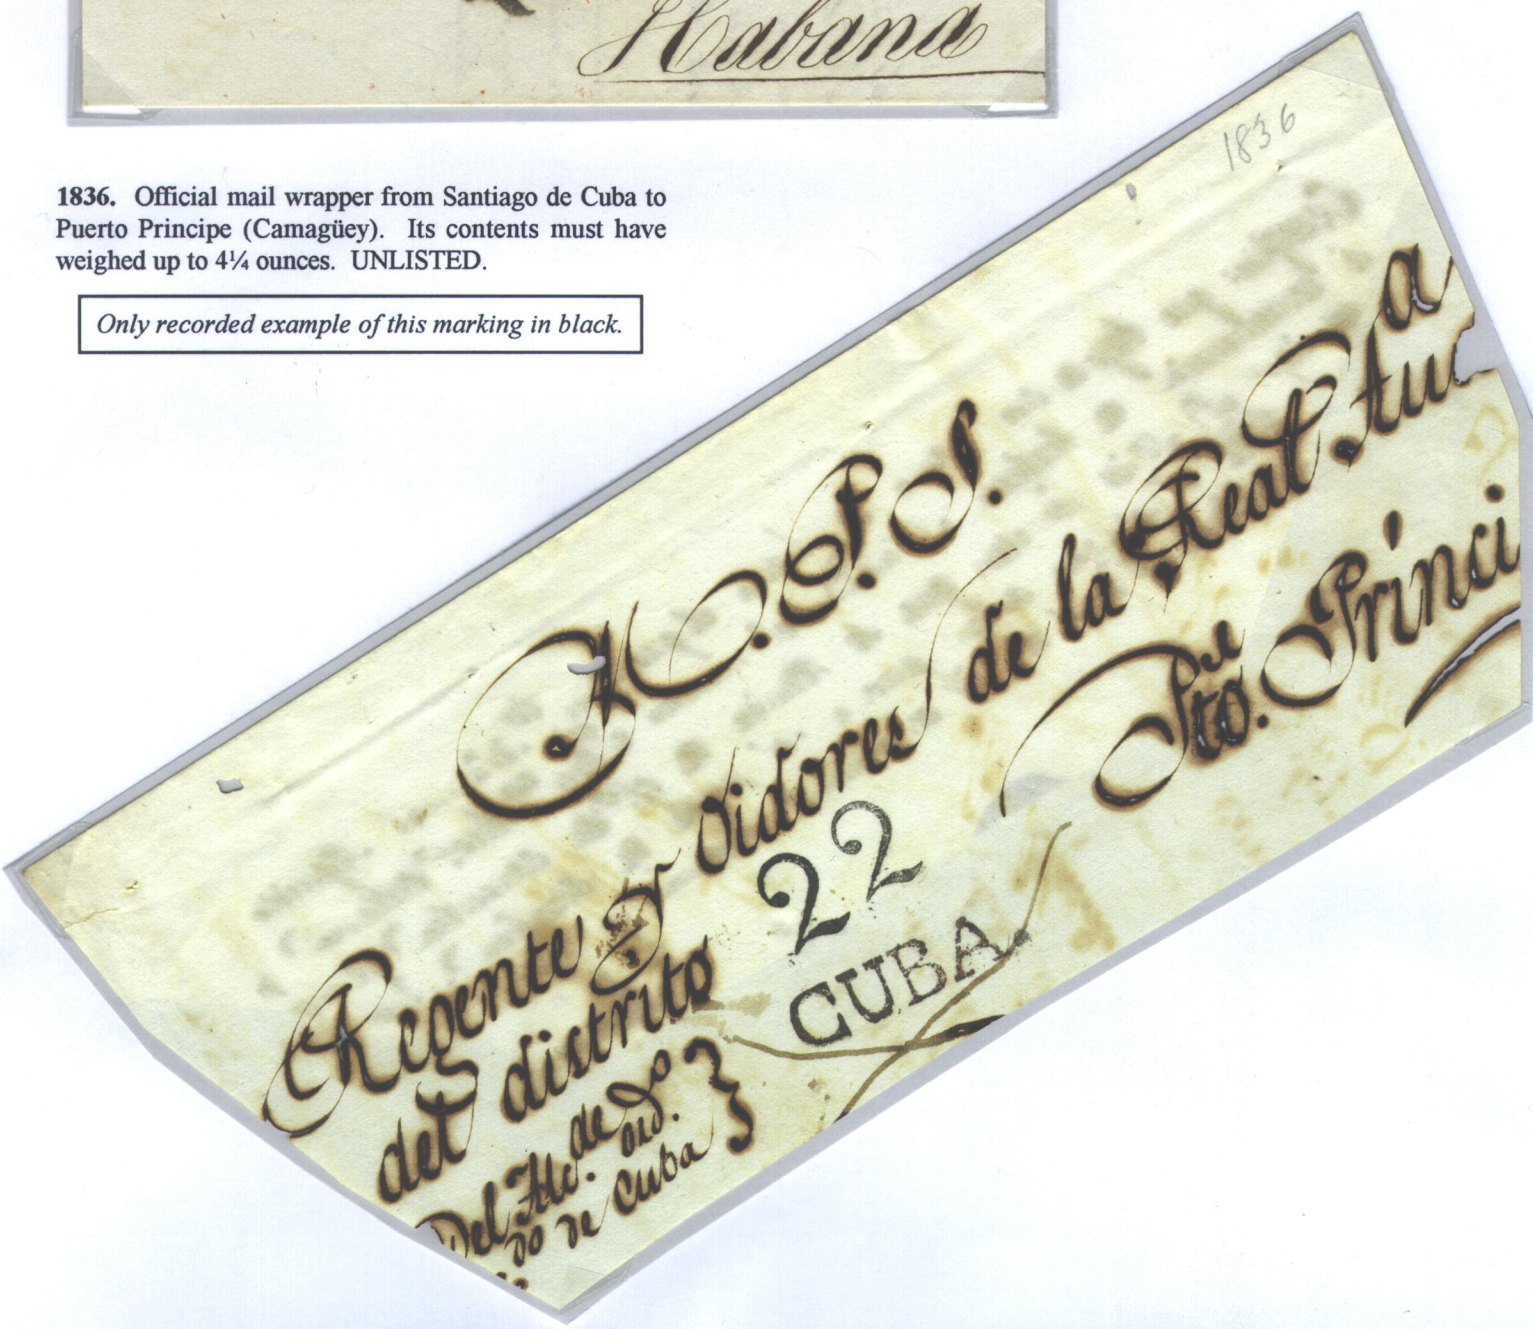 Habana
1836. Official mail wrapper from Santiago de Cuba to
Puerto Principe (Camagüey). Its contents must have
weighed up to 4¼ ounces. UNLISTED.
Only recorded example of this marking in black.
1836
M.P.S.
a
Regente y oidores de la Real Au
del distrito
Pto. Princi
22
CUBA
Del Alc. de
de Cuba